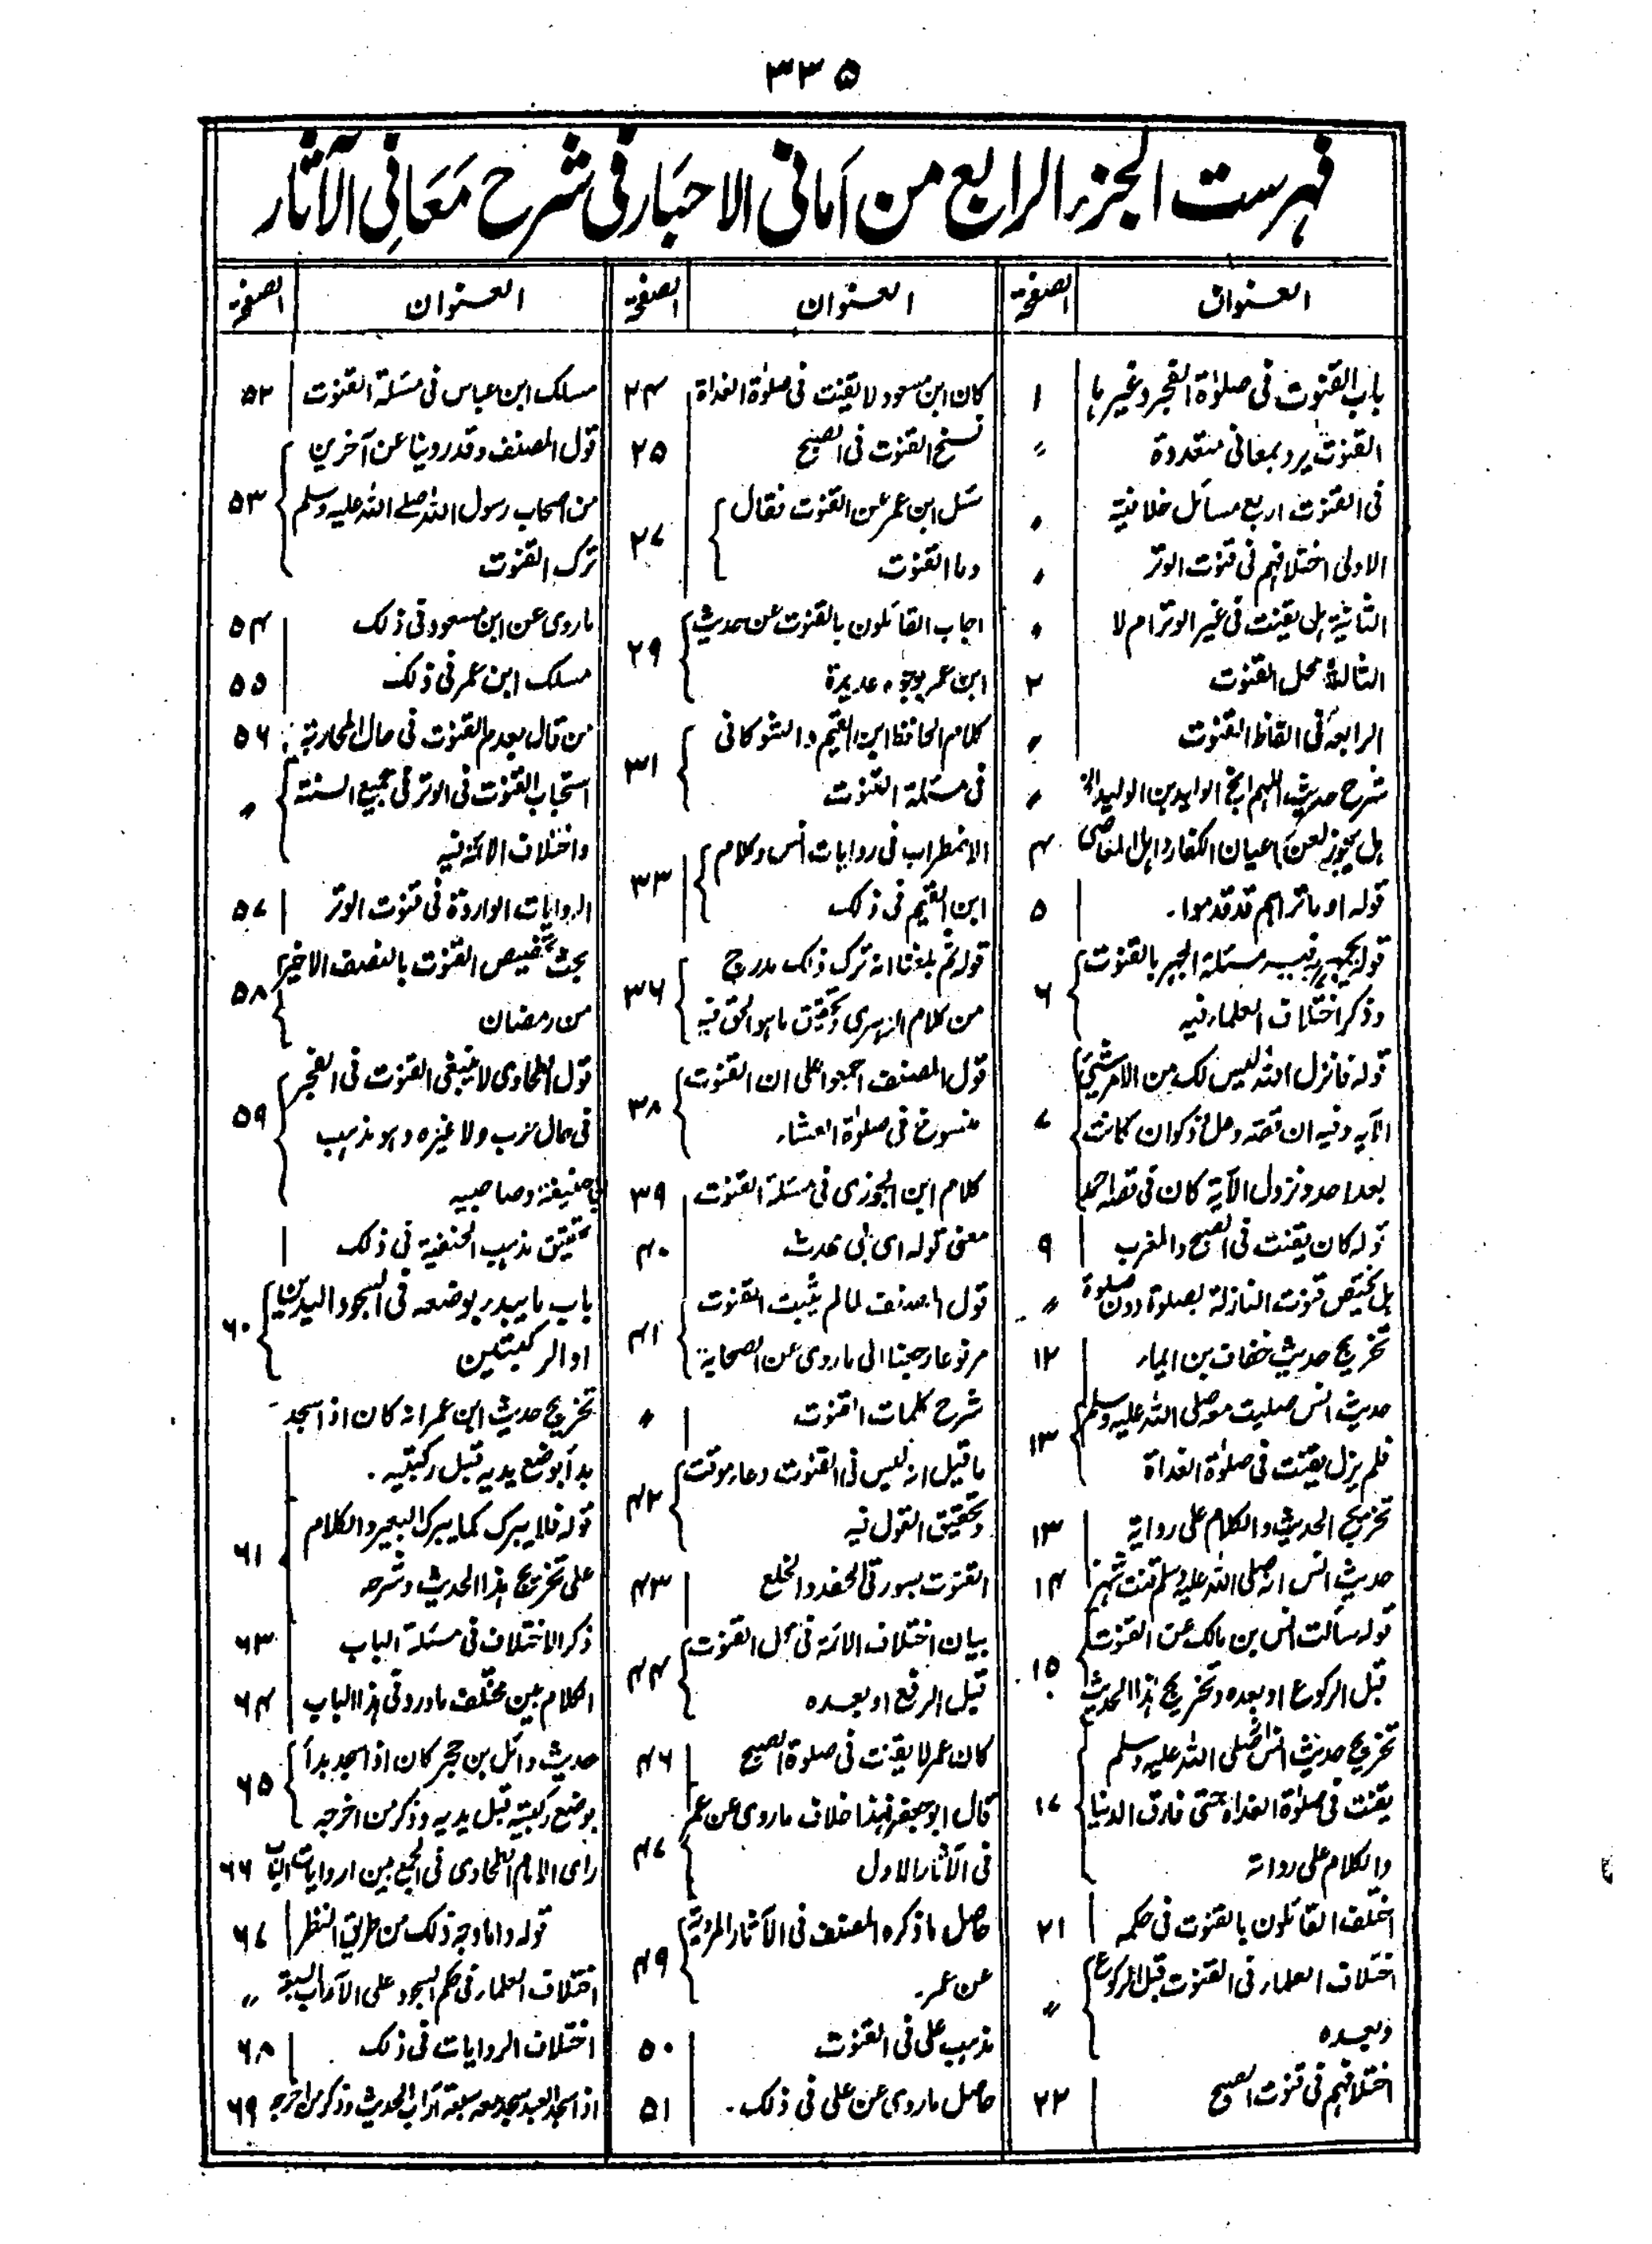 ٣٣٥
فهرست الجزء الرابع من اَمانی الاحبَار فی شرح مَعَانِی الآثار
العنوان الصفحة
باب القنوت فی صلوٰة الفجر وغیرہا ١
القنوت یرد بمعانی متعددة ״
فی القنوت اربع مسائل خلافیة ״
الاولی اختلافهم فی قنوت الوتر ״
الثانیة ہل یقنت فی غیر الوتر ام لا ״
الثالثة محل القنوت ٢
الرابعة فی الفاظ القنوت ״
شرح حدیث اللہم انج الولید بن الولید الخ ״
ہل یجوز لعن اعیان الکفار واہل المعاصی ٤
قوله او ما تراہم قد قدموا۔ ٥
قوله یجہر بہ فیہ مسئلة الجہر بالقنوت
وذکر اختلاف العلماء فیہ ٦
قوله فانزل اللہ لیس لک من الامر شیئ
الآیہ وفیہ ان قصة رعل وذکوان کانت ٧
بعد احد ونزول الآیة کان فی قصة احد
قوله کان یقنت فی الصبح والمغرب ٩
ہل یختص قنوت النازلة بصلوة دون صلوة ״
تخریج حدیث خفاف بن ایماء ١٢
حدیث انس صلیت معہ صلی اللہ علیہ وسلم
فلم یزل یقنت فی صلوٰة الغداة ١٣
تخریج الحدیث والکلام علی رواتہ ١٣
حدیث انس انہ صلی اللہ علیہ وسلم قنت شہرا ١٤
قوله سألت انس بن مالک عن القنوت
قبل الرکوع او بعدہ وتخریج ہذا الحدیث ١٥
تخریج حدیث انس صلی اللہ علیہ وسلم
یقنت فی صلوٰة الغداة حتی فارق الدنیا ١٧
والکلام علی رواتہ
اختلف القائلون بالقنوت فی حکمہ ٢١
اختلاف العلماء فی القنوت قبل الرکوع
وبعدہ ״
اختلافہم فی قنوت الصبح ٢٢
العنوان الصفحة
کان ابن مسعود لا یقنت فی صلوٰة الغداة ٢٤
نسخ القنوت فی الصبح ٢٥
سئل ابن عمر عن القنوت فقال
وما القنوت ٢٧
اجاب القائلون بالقنوت عن حدیث
ابن عمر بوجوہ عدیدة ٢٩
کلام الحافظ ابن القیم والشوکانی
فی مسئلة القنوت ٣١
الاضطراب فی روایات انس وکلام
ابن القیم فی ذلک ٣٣
قوله ثم بلغنا انہ ترک ذلک مدرج
من کلام الزہری وتحقیق ما ہو الحق فیہ ٣٦
قول المصنف اجمعوا علی ان القنوت
منسوخ فی صلوٰة العشاء ٣٨
کلام ابن الجوزی فی مسئلة القنوت ٣٩
معنی قوله ای بنی محدث ٤٠
قول المصنف لما لم یثبت القنوت
مرفوعا رجعنا الی ما روی عن الصحابة ٤١
شرح کلمات القنوت ״
ما قیل انہ لیس فی القنوت دعاء موقت
وتحقیق القول فیہ ٤٢
القنوت بسورتی الحفد والخلع ٤٣
بیان اختلاف الائمة فی محل القنوت
قبل الرفع او بعدہ ٤٤
کان عمر لا یقنت فی صلوة الصبح ٤٦
قال ابو جعفر فہذا خلاف ما روی عن عمر
فی الآثار الاول ٤٧
حاصل ما ذکرہ المصنف فی الآثار المرویة
عن عمر۔ ٤٩
مذہب علی فی القنوت ٥٠
حاصل ما روی عن علی فی ذلک۔ ٥١
العنوان الصفحة
مسلک ابن عباس فی مسئلة القنوت ٥٢
قول المصنف وقد روینا عن آخرین
من اصحاب رسول اللہ صلے اللہ علیہ وسلم ٥٣
ترک القنوت
ما روی عن ابن مسعود فی ذلک ٥٤
مسلک ابن عمر فی ذلک ٥٥
من قال بعدم القنوت فی حال المحاربة ٥٦
استحباب القنوت فی الوتر فی جمیع السنة
واختلاف الائمة فیہ ״
الروایات الواردة فی قنوت الوتر ٥٧
بحث تخصیص القنوت بالنصف الاخیر
من رمضان ٥٨
قول الطحاوی لا ینبغی القنوت فی الفجر
فی حال حرب ولا غیرہ وہو مذہب ٥٩
ابی حنیفة وصاحبیہ
تحقیق مذہب الحنفیة فی ذلک
باب ما یبدء بوضعہ فی السجود الیدین
او الرکبتین ٦٠
تخریج حدیث ابن عمر انہ کان اذا سجد
بدأ بوضع یدیہ قبل رکبتیہ۔
قوله فلا یبرک کما یبرک البعیر والکلام ٦١
علی تخریج ہذا الحدیث وشرحہ
ذکر الاختلاف فی مسئلة الباب ٦٣
الکلام بین مختلف ما ورد فی ہذا الباب ٦٤
حدیث وائل بن حجر کان اذا سجد بدأ
بوضع رکبتیہ قبل یدیہ وذکر من اخرجہ ٦٥
رای الامام الطحاوی فی الجمع بین روایات الباب ٦٦
قوله واما وجہ ذلک من طریق النظر ٦٧
اختلاف العلماء فی حکم السجود علی الآراب السبعة ״
اختلاف الروایات فی ذلک ٦٨
اذا سجد العبد سجد معہ سبعة آراب الحدیث وذکر من اخرجہ ٦٩